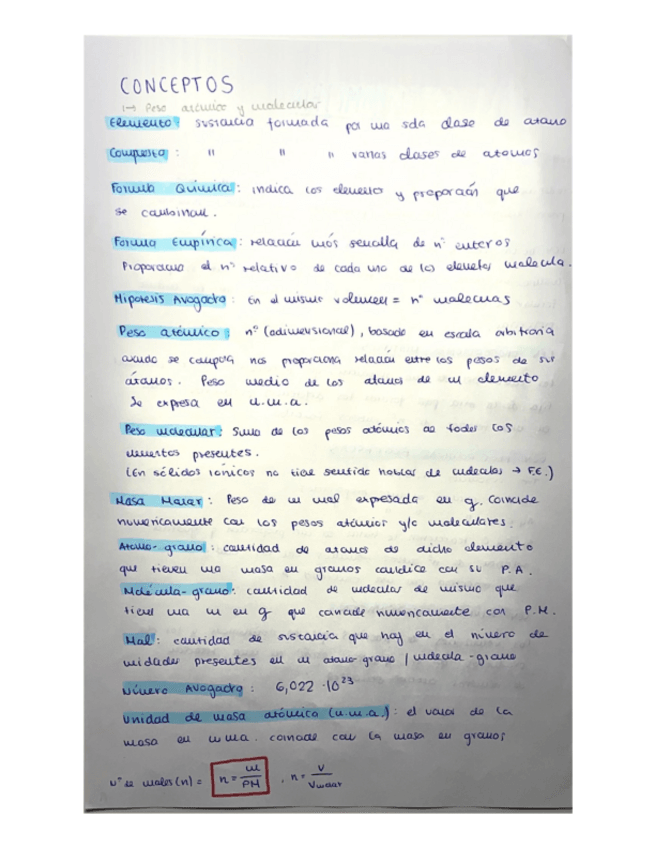 CONCEPTOS
1→ Peso atómico y molecular
Elemento: sustancia formada por una sola clase de átomo
Compuesto: " " " varias clases de átomos
Fórmula Química: indica los elementos y proporción que
se combinan.
Fórmula Empírica: relación más sencilla de nº enteros
Proporciona el nº relativo de cada uno de los elementos molécula.
Hipótesis Avogadro: En el mismo volumen = nº moléculas
Peso atómico: nº (adimensional), basado en escala arbitraria
cuando se compara nos proporciona relación entre los pesos de sus
átomos. Peso medio de los átomos de un elemento
Se expresa en u.m.a.
Peso molecular: Suma de los pesos atómicos de todos los
elementos presentes.
(En sólidos iónicos no tiene sentido hablar de moléculas → F.E.)
Masa Molar: Peso de un mol expresada en g. Coincide
numéricamente con los pesos atómicos y/o moleculares.
Átomo-gramo: cantidad de átomos de dicho elemento
que tienen una masa en gramos coincide con su P.A.
Molécula-gramo: cantidad de moléculas de mismo que
tiene una m en g que coincide numéricamente con P.M.
Mol: cantidad de sustancia que hay en el número de
unidades presentes en un átomo-gramo / molécula-gramo
Número Avogadro: 6,022 · 10²³
Unidad de masa atómica (u.m.a.): el valor de la
masa en uma. coincide con la masa en gramos
nº de moles (n) = n = m/PM , n = V/Vmolar